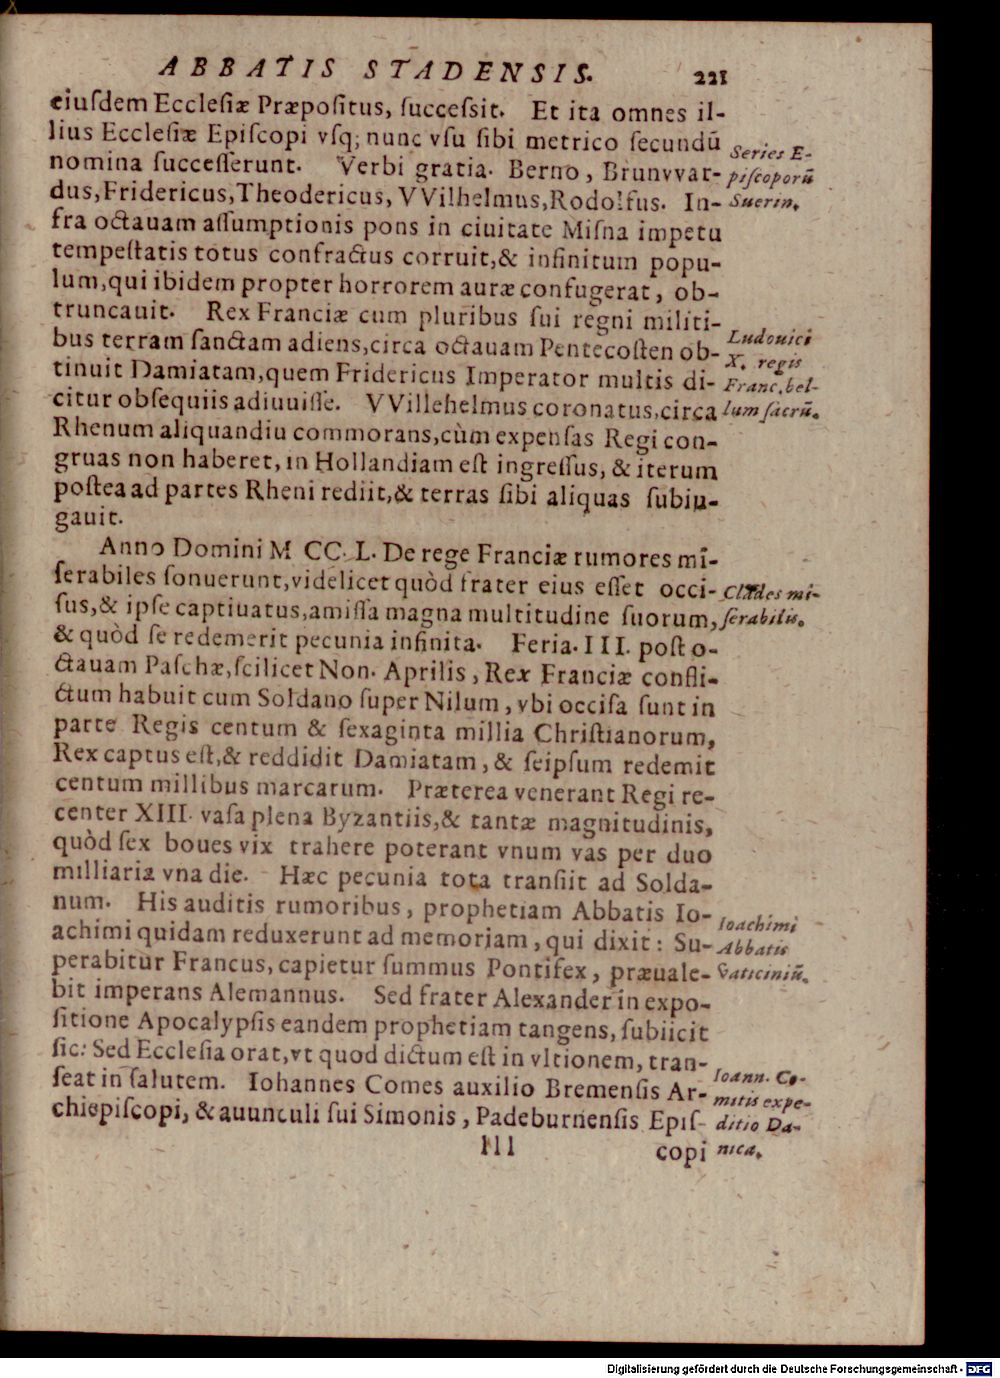 ABBATIS STADENSIS. 221
eiuſdem Eccleſiæ Præpoſitus, ſucceſsit. Et ita omnes il-
lius Eccleſiæ Epiſcopi vſq; nunc vſu ſibi metrico ſecundũ
nomina ſucceſſerunt. Verbi gratia. Berno, Brunvvar-
dus, Fridericus, Theodericus, VVilhelmus, Rodolfus. In-
fra octauam aſſumptionis pons in ciuitate Miſna impetu
tempeſtatis totus confractus corruit, & infinitum popu-
lum, qui ibidem propter horrorem auræ confugerat, ob-
truncauit. Rex Franciæ cum pluribus ſui regni militi-
bus terram ſanctam adiens, circa octauam Pentecoſten ob-
tinuit Damiatam, quem Fridericus Imperator multis di-
citur obſequiis adiuuiſſe. VVillehelmus coronatus, circa
Rhenum aliquandiu commorans, cùm expenſas Regi con-
gruas non haberet, in Hollandiam eſt ingreſſus, & iterum
poſtea ad partes Rheni rediit, & terras ſibi aliquas ſubiu-
gauit.
Anno Domini M CC. L. De rege Franciæ rumores mi-
ſerabiles ſonuerunt, videlicet quòd frater eius eſſet occi-
ſus, & ipſe captiuatus, amiſſa magna multitudine ſuorum,
& quòd ſe redemerit pecunia infinita. Feria. III. poſt o-
ctauam Paſchæ, ſcilicet Non. Aprilis, Rex Franciæ confli-
ctum habuit cum Soldano ſuper Nilum, vbi occiſa ſunt in
parte Regis centum & ſexaginta millia Chriſtianorum,
Rex captus eſt, & reddidit Damiatam, & ſeipſum redemit
centum millibus marcarum. Præterea venerant Regi re-
center XIII. vaſa plena Byzantiis, & tantæ magnitudinis,
quòd ſex boues vix trahere poterant vnum vas per duo
milliaria vna die. Hæc pecunia tota tranſiit ad Solda-
num. His auditis rumoribus, prophetiam Abbatis Io-
achimi quidam reduxerunt ad memoriam, qui dixit: Su-
perabitur Francus, capietur ſummus Pontifex, præuale-
bit imperans Alemannus. Sed frater Alexander in expo-
ſitione Apocalypſis eandem prophetiam tangens, ſubiicit
ſic: Sed Eccleſia orat, vt quod dictum eſt in vltionem, tran-
ſeat in ſalutem. Iohannes Comes auxilio Bremenſis Ar-
chiepiſcopi, & auunculi ſui Simonis, Padeburnenſis Epiſ-
lll copi
Series E-
piſcoporũ
Suerin.
Ludouici
X. regis
Franc. bel-
lum ſacrũ.
Clades mi-
ſerabilis.
Ioachimi
Abbatis
vaticiniũ.
Ioann. Co-
mitis expe-
ditio Da-
nica.
Digitalisierung gefördert durch die Deutsche Forschungsgemeinschaft - DFG